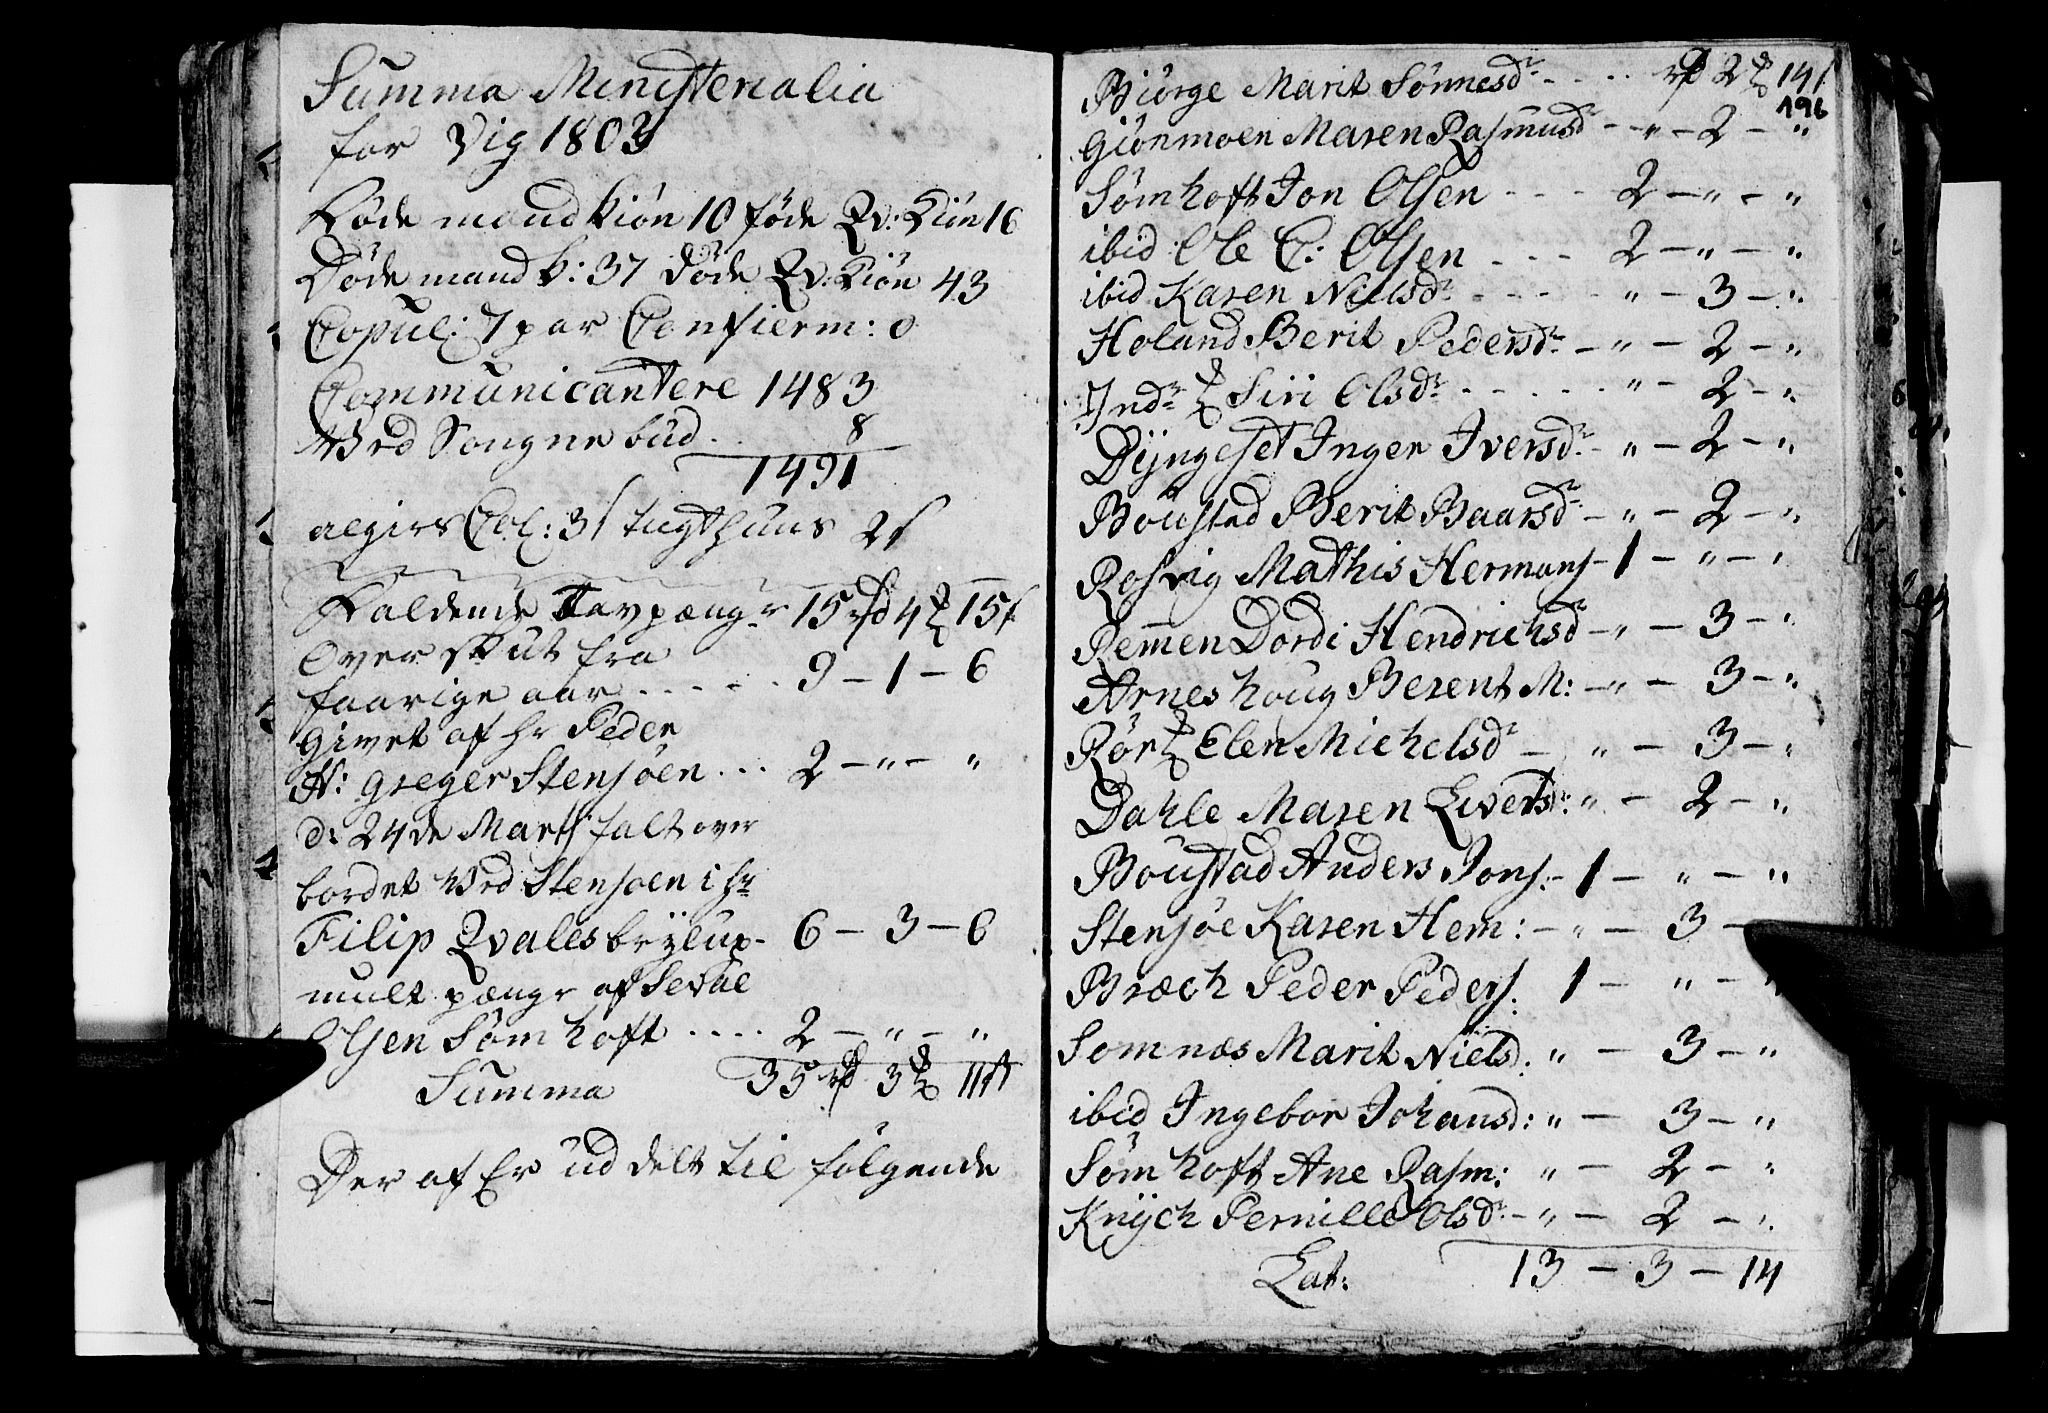 Summa Ministerialia
for Vig 1803
Føde mand kiøn 10 føde Qv: Kiøn 16
Døde mand k: 37 døde Qv: Kiøn 43
Copul: 7 par Confierm: 0
Communicantere 1483
Ved Songne bud .. 8
1491
algiers Col: 3 s Tugthuus 2 s
Faldende Tavpæng 15 rd 4 15 s
Over skut fra
faarige aar ..... 9 - 1 - 6
Givet af hr Peder
H: Greger Stensøen ... 2 - " - "
d: 24de Marts falt over
bordet Ved Stensøen i hr
Filip Qvales brylup - 6 - 3 - 6
mult pænge af Seval
Olsen Sømhoft .... 2 - " - "
Summa 35 rd 3 11 s
Der af Er ud delt til følgende
Biørge Marit Sønnesdr ..... rd 2 14 s
196
Giønmoen Maren Rasmusdr - " - 2 - "
Sømhoft Jon Olsen ... 2 - " - "
ibid Ole C: Olsen ... 2 - " - "
ibid Karen Nielsdr ..... " - 3 - "
Holand Berit Pedersdr - " - 2 - "
Indr Siri Olsdr ..... " - 2 - "
Dÿngeset Inger Iversdr - " - 2 - "
Boustad Berit Baarsdr - " - 2 - "
Rosvig Mathis Hermans - 1 - " - "
Remen Dordi Hendrichsdr - " - 3 - "
Arneshoug Berent M: - " - 3 - "
Rør Elen Michelsdr - " - 3 - "
Dahle Maren Evertsd: " - 2 - "
Boustad Anders Jons: - 1 - " - "
Stensøe Karen Hem: - " - 3 -
Bræch Peder Peders. 1 - " - "
Somnæs Marit Nielsd: " - 3 - "
ibid Ingebor Johansd: " - 3 - "
Sømhoft Ane Rasm: " - 2 - "
Knÿch Pernille Olsdr - " - 2 - "
Lat: 13 - 3 - 14